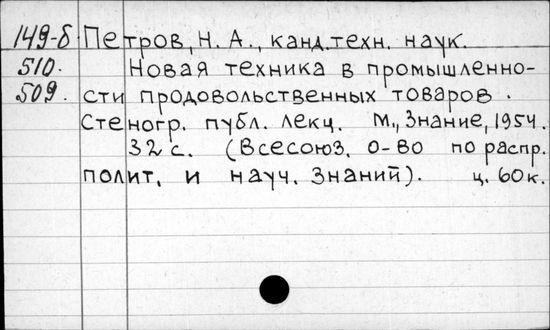 149-б Петров, Н. А., канд.техн. наук.
510. Новая техника в промышленно-
509. сти продовольственных товаров.
Стеногр. публ. лекц. М., Знание, 1954.
32 с. (Всесоюз. о-во по распр.
полит. и науч. знаний). ц. 60к.